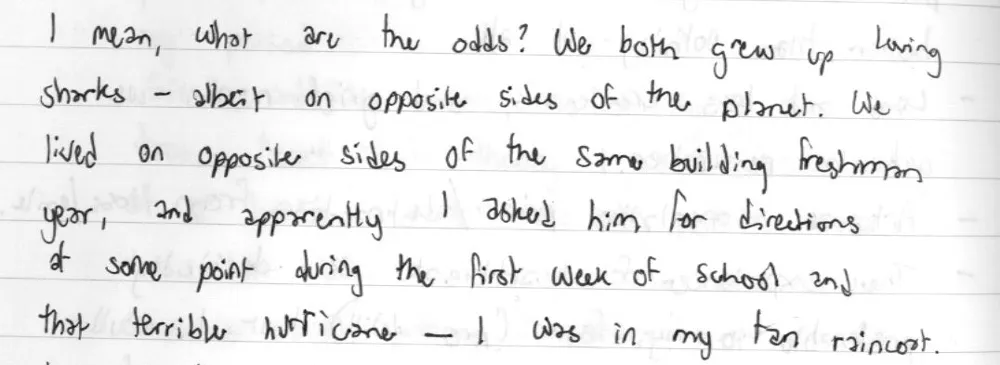 I mean, what are the odds? We both grew up loving
sharks – albeit on opposite sides of the planet. We
lived on opposite sides of the same building freshman
year, and apparently I asked him for directions
at some point during the first week of school and
that terrible hurricane — I was in my tan raincoat.